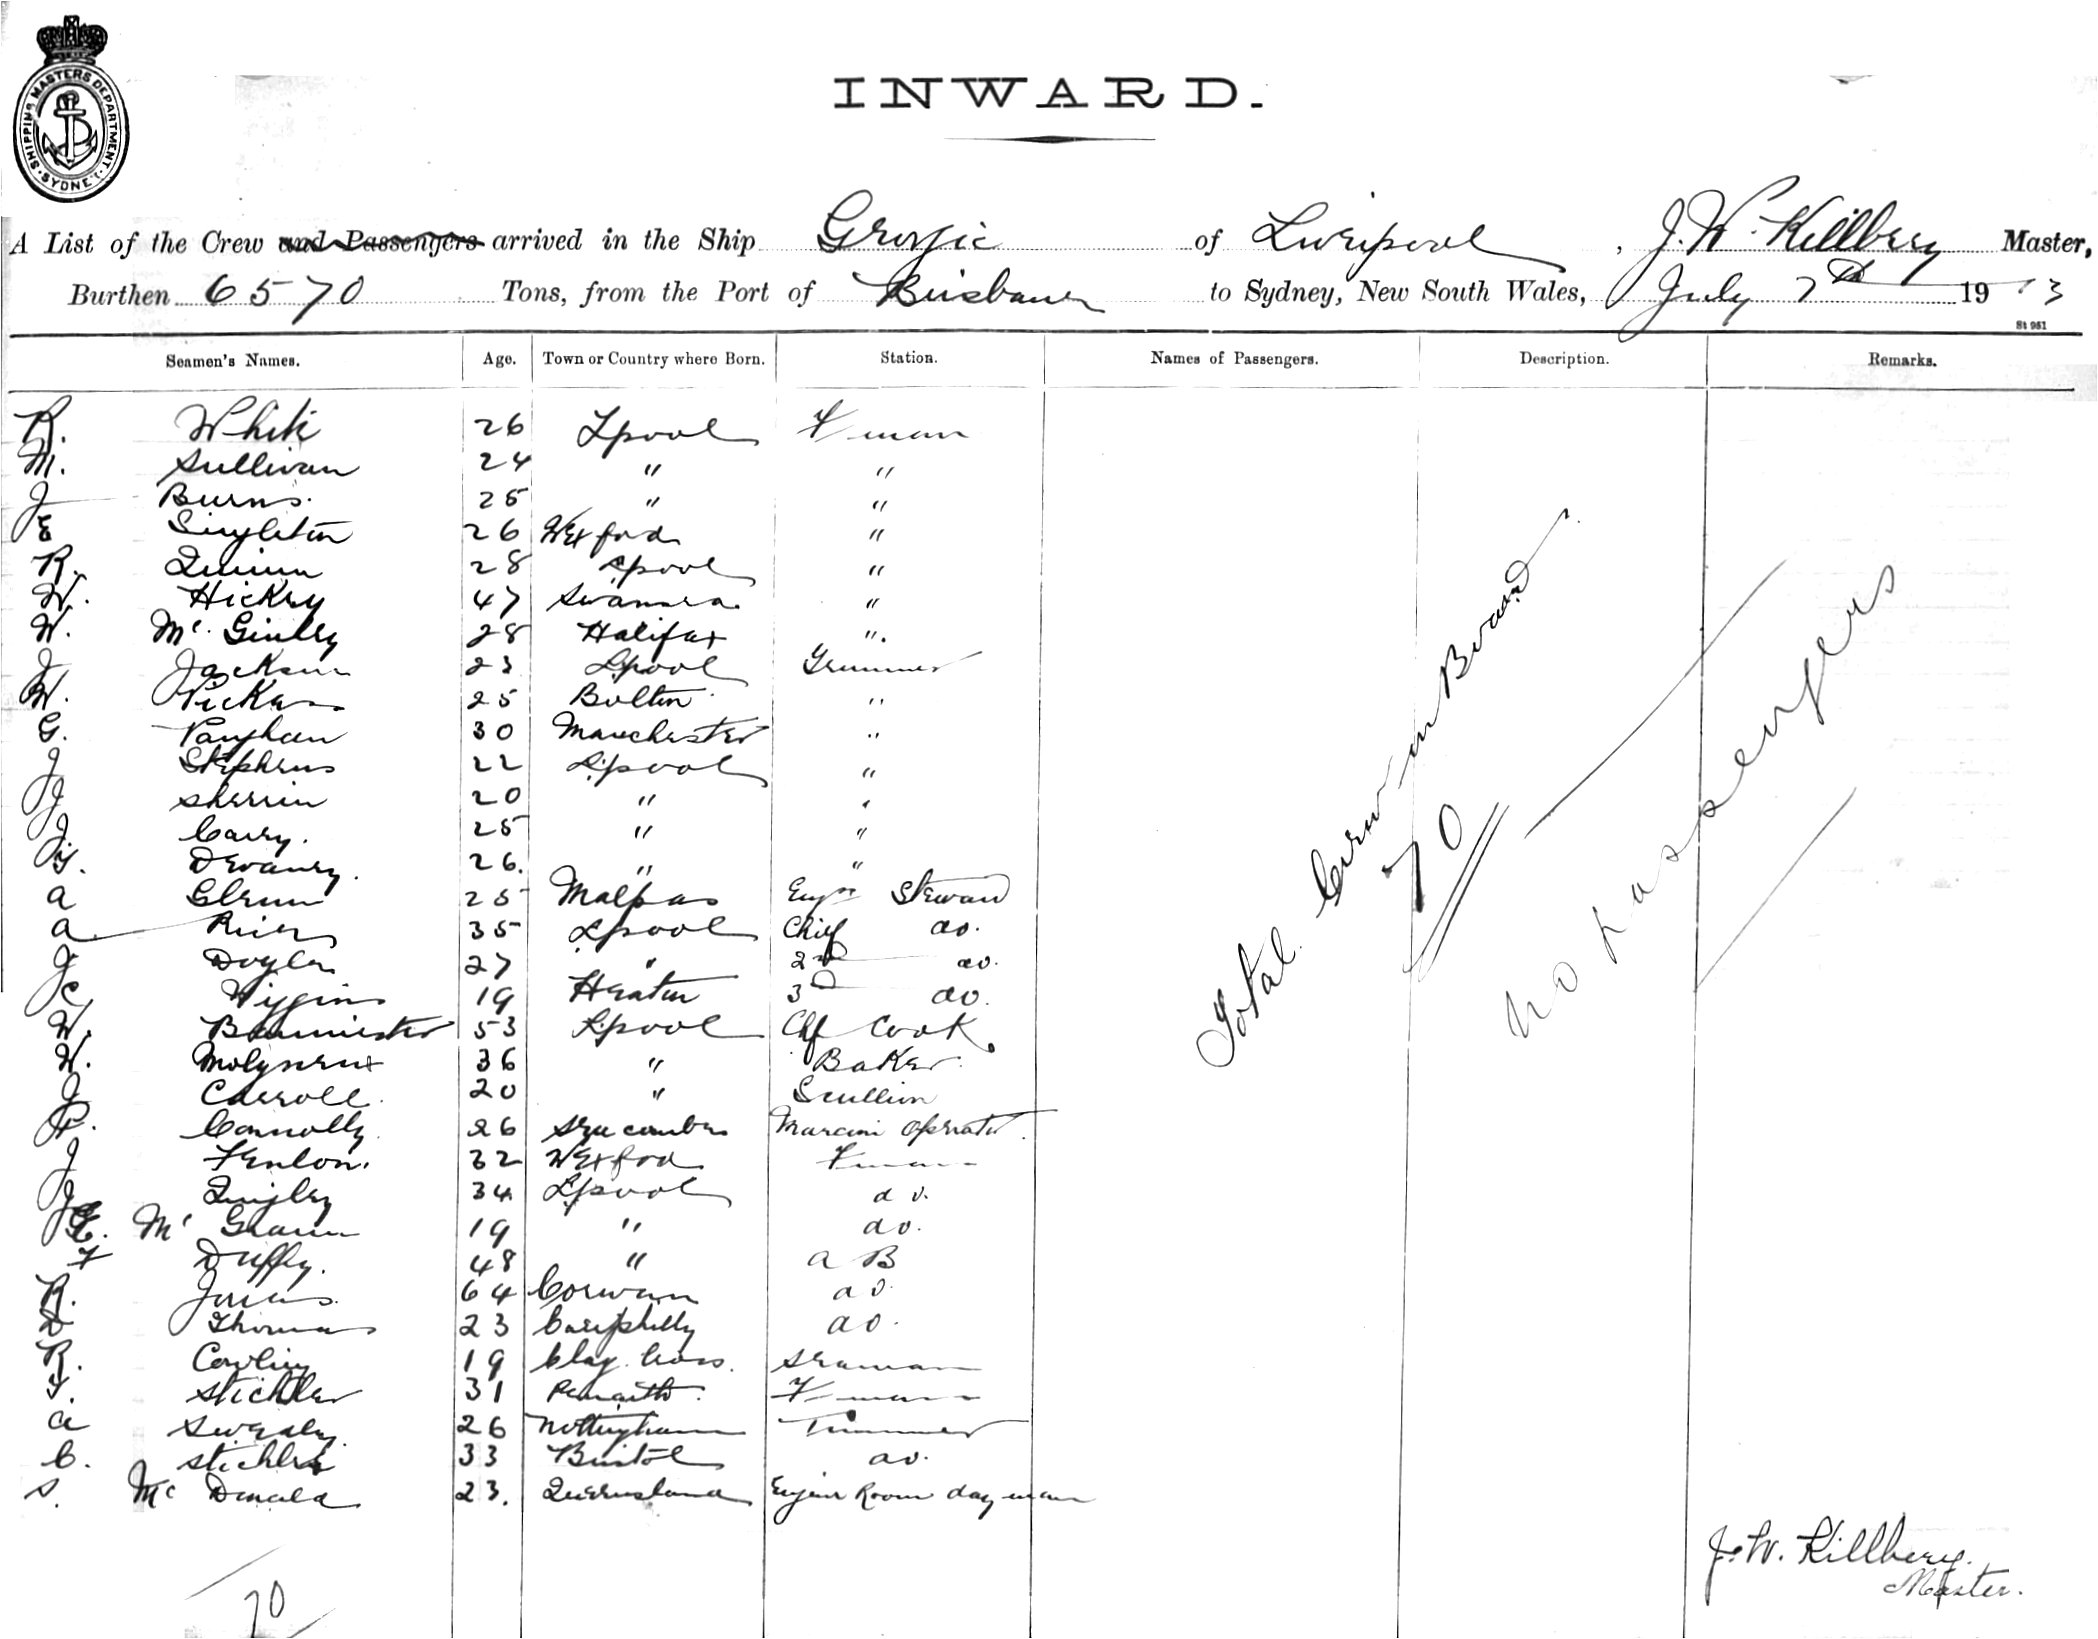 SHIPPING MASTERS DEPARTMENT. SYDNEY.
INWARD.
A List of the Crew and Passengers arrived in the Ship Georgic of Liverpool, J. W. Killbery Master,
Burthen 6570 Tons, from the Port of Brisbane to Sydney, New South Wales, July 7th 1913
St 981
Seamen's Names. Age. Town or Country where Born. Station. Names of Passengers. Description. Remarks.
R. White 26 Lpool Fman
M. Sullivan 24 " "
J Burns. 25 " "
E Singleton 26 Wexford "
R. Quinn 28 Lpool "
W. Hickey 47 Swansea "
W. Mc Ginley 28 Halifax "
J Jackson 23 Lpool Trimmer
W. Vickers 25 Bolton "
G. Vaughan 30 Manchester "
J Stephens 22 Lpool "
J Sherrin 20 " "
J Carey. 25 " "
T. Devaney. 26. " "
A Glenn 25 Malpas Engrs Steward
A Rice 35 Lpool Chief do.
J Doyle 27 " 2nd do.
C. Wiggins 19 Heaton 3rd do.
W. Bannister 53 Lpool Chf Cook
W. Molyneux 36 " Baker
J Carroll 20 " Scullion
P. Connolly 26 Seacombe Marconi Operator
J Fenlon. 32 Wexford Fman
J Quigley 34 Lpool do.
E. Mc Grann 19 " do.
F Duffy. 48 " A B
R. Jones 64 Corwen do.
D Thomas 23 Caerphilly do.
R. Cowling 19 Clay Cross. Seaman
T. Stickler 31 Penarth. Fman
A Swealey 26 Nottingham Trimmer
C. Stickler 33 Bristol do.
S. Mc Donald 23. Queensland Engine Room day man
Total Crew on Board
70
No Passengers
J. W. Killbery.
Master.
70